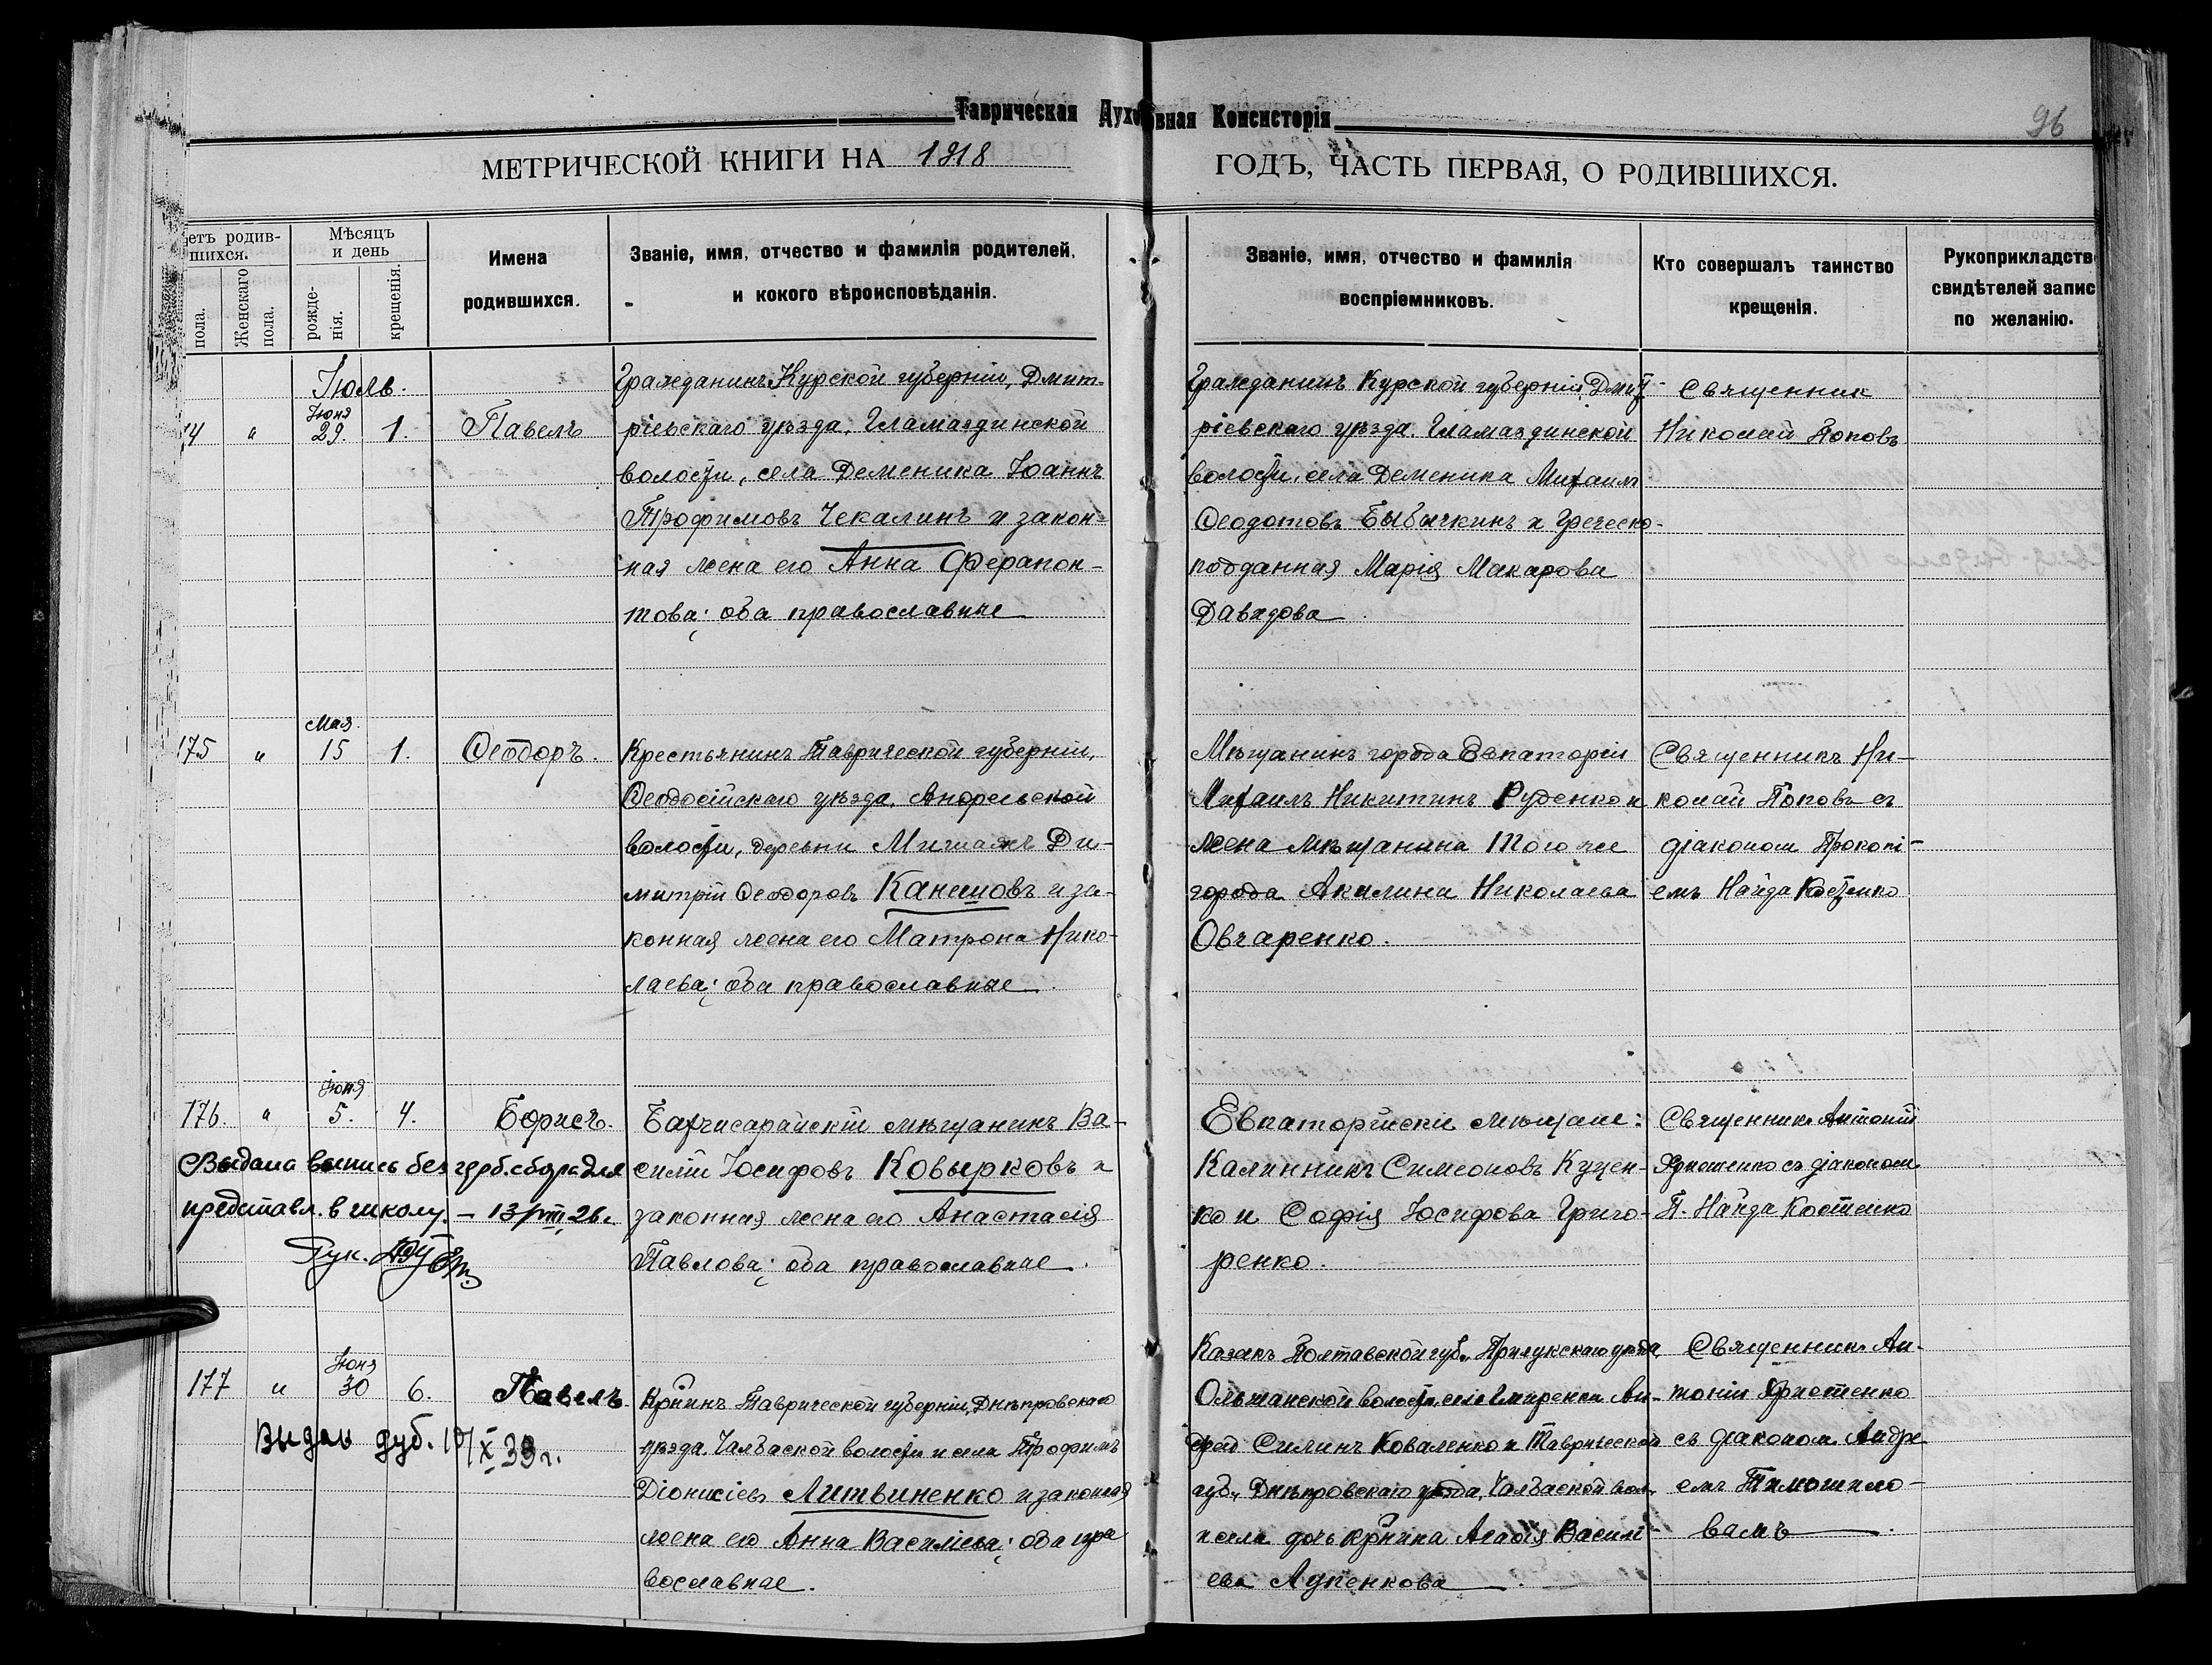 Таврическая Духовная Консисторія
96
МЕТРИЧЕСКОЙ КНИГИ НА 1918 ГОДЪ, ЧАСТЬ ПЕРВАЯ, О РОДИВШИХСЯ.
четъ родив-
шихся.
пола.
Женскаго
пола.
Мѣсяцъ
и день
рожде-
нія.
крещенія.
Имена
родившихся.
Званіе, имя, отчество и фамилія родителей,
и кокого вѣроисповѣданія.
Званіе, имя, отчество и фамилія
воспріемниковъ.
Кто совершалъ таинство
крещенія.
Рукоприкладств
свидѣтелей запис
по желанію.
Іюль.
Іюня
74 " 29 1. Павелъ
Гражданинъ Курской губерніи, Дмит-
ріевскаго уѣзда, Гламаздинской
волости, села Деменика Іоаннъ
Трофимовъ Чекалинъ и закон-
ная жена его Анна Ферапон-
това; оба православные
Гражданинъ Курской губерніи, Дмит-
ріевскаго уѣзда Гламаздинской
волости, села Деменика Михаилъ
Ѳеодотовъ Бывачкинъ и Греческо-
подданная Марія Макарова
Давидова
Священник
Николай Поповъ
Мая
175 " 15 1. Ѳеодоръ.
Крестьянинъ Таврической губерніи,
Ѳеодосійскаго уѣзда, Андреевской
волости, деревни Димитрій Ѳеодоровъ Канешовъ и за-
конная жена его Матрона Нико-
лаева; оба православные.
Мѣщанинъ города Евпаторіи
Михаилъ Никитинъ Руденко и
жена мѣщанина того же
города Акилина Николаева
Овчаренко.
Священникъ Ни-
колай Поповъ съ
діакономъ Прокопі-
емъ Найда Костенко
Іюня
176. " 5. 4. Борисъ.
Выдана выпись без герб. сбора для
представл. в школу. – 13/VIII 26 г.
Рук.
Бахчисарайскій мѣщанинъ Ва-
силій Іосифовъ Ковырковъ и
законная жена его Анастасія
Павлова; оба православные.
Евпаторійскіе мѣщане:
Калинникъ Симеоновъ Куцен-
ко и Софія Іосифова Григо-
ренко.
Священник Антоній
съ діакономъ
П. Найда Костенко
Іюня
177 " 30 6. Павелъ.
Выдан дуб. 10/X 33 г.
Кр–нинъ Таврической губерніи, Днѣпровскаго
уѣзда, Чалбаской волости и села Трофимъ
Діонисіевъ Литвиненко и законная
жена его Анна Василіева; оба пра
вославные.
Казакъ Полтавской губ., Прилукскаго уѣзда,
Ольшанской волости, села Андрей Силинъ Коваленко и Таврической
губ., Днѣпровскаго уѣзда, Чалбаской вол.
и села дочь кр–нина Агафія Васил-
ева Лупенкова.
Священник Ан-
тоній
съ діакономъ Андре
емъ Тимошило-
вымъ.